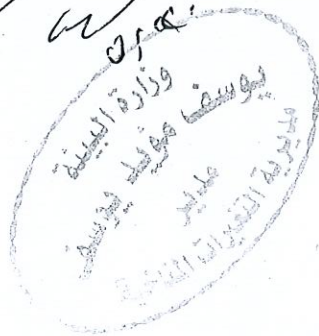 وزارة البيئة
يوسف مؤيد يوسف
مدير
مديرية التغيرات المناخية